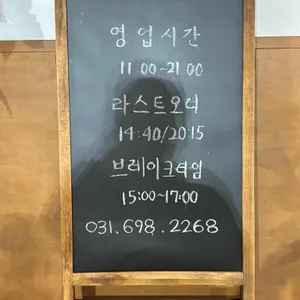 영업시간
11:00~21:00
라스트오더
14:40/20:15
브레이크타임
15:00~17:00
031.698.2268